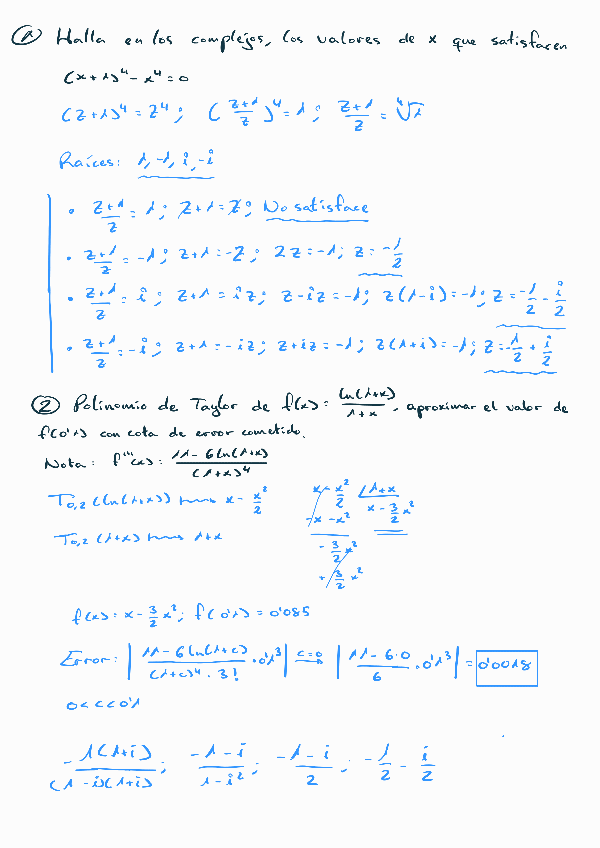 ① Halla en los complejos, los valores de x que satisfacen
(x+1)⁴-x⁴=0
(z+1)⁴=z⁴; ((z+1)/z)⁴=1; (z+1)/z=⁴√1
Raíces: 1,-1,i,-i
• (z+1)/z=1; z+1=z; No satisface
• (z+1)/z=-1; z+1=-z; 2z=-1; z=-1/2
• (z+1)/z=i; z+1=iz; z-iz=-1; z(1-i)=-1; z=-1/2-i/2
• (z+1)/z=-i; z+1=-iz; z+iz=-1; z(1+i)=-1; z=-1/2+i/2
② Polinomio de Taylor de f(x)=ln(1+x)/(1+x), aproximar el valor de
f(0'1) con cota de error cometido.
Nota: f'''(x)=(11-6ln(1+x))/(1+x)⁴
T₀,₂(ln(1+x)) x-x²/2
T₀,₂(1+x) 1+x
x-x²/2 |1+x
-x-x² x-3/2x²
-3/2x²
+3/2x²
f(x)=x-3/2x²; f(0'1)=0'085
Error: |(11-6ln(1+c))/((1+c)⁴·3!)·0'1³| c=0 |(11-6·0)/6·0'1³|=0'0018
0<c<0'1
-1(1+i)/((1-i)(1+i)); (-1-i)/(1-i²); (-1-i)/2; -1/2-i/2